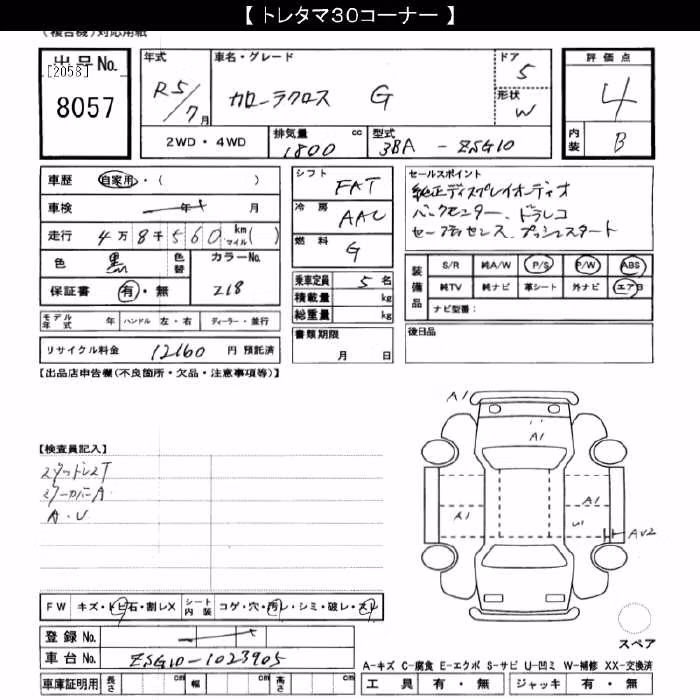 【 トレタマ30コーナー 】
(複合機)対応用紙
出品No.
[2058]
8057
年式
R5/7月
車名・グレード
カローラクロス G
ドア
5
形状
W
評価点
4
内装
B
2WD・4WD
排気量
1800 cc
型式
3BA - ZSG10
車歴 自家用・( )
車検 年 月
走行 4万8千560 km マイル( )
色 黒
色替
カラーNo.
218
保証書 有・無
モデル年式 年 ハンドル 左・右 ディーラー・並行
リサイクル料金 12160 円 預託済
シフト
FAT
冷房
AAC
燃料
G
乗車定員 5 名
積載量 kg
総重量 kg
書類期限
月 日
セールスポイント
純正ディスプレイオーディオ
バックモニター、ドラレコ
セーフティセンス、プッシュスタート
装備品
S/R 純A/W P/S P/W ABS
純TV 純ナビ 革シート 外ナビ エアB
ナビ型番:
後日品
【出品店申告欄(不良箇所・欠品・注意事項等)】
【検査員記入】
スタッドレスT
A・U
A1
A1
A1
A1
U1
AU2
FW キズ・トビ石・割レX
シート内装 コゲ・穴・汚レ・シミ・破レ・スレ
登録No.
車台No. ZSG10-1023905
車庫証明用 長さ cm 幅 cm 高さ cm
スペア
A-キズ C-腐食 E-エクボ S-サビ U-凹ミ W-補修 XX-交換済
工具 有・無 ジャッキ 有・無